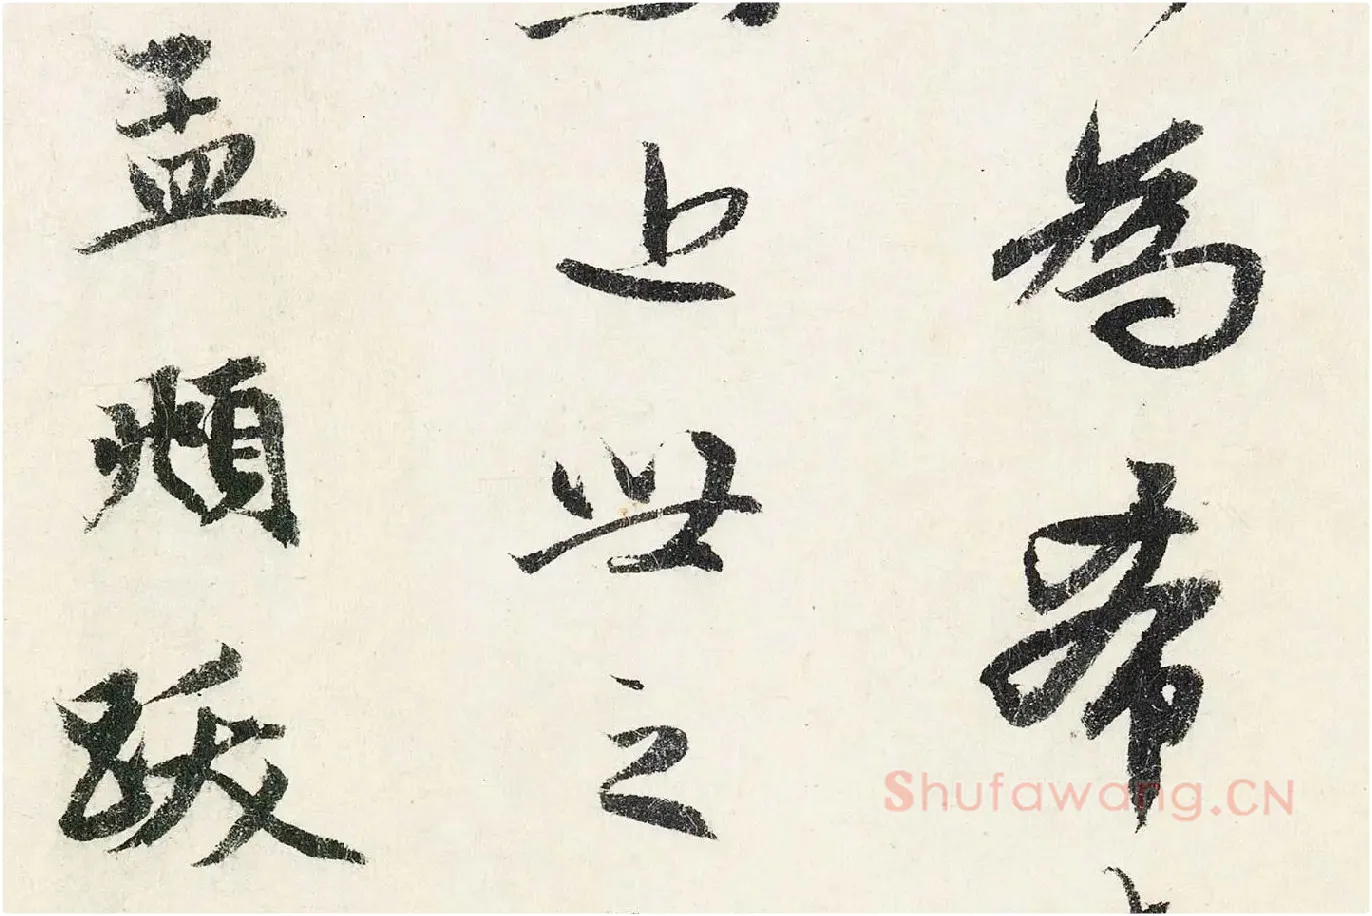 為希
上世之
孟頫跋
Shufawang.CN